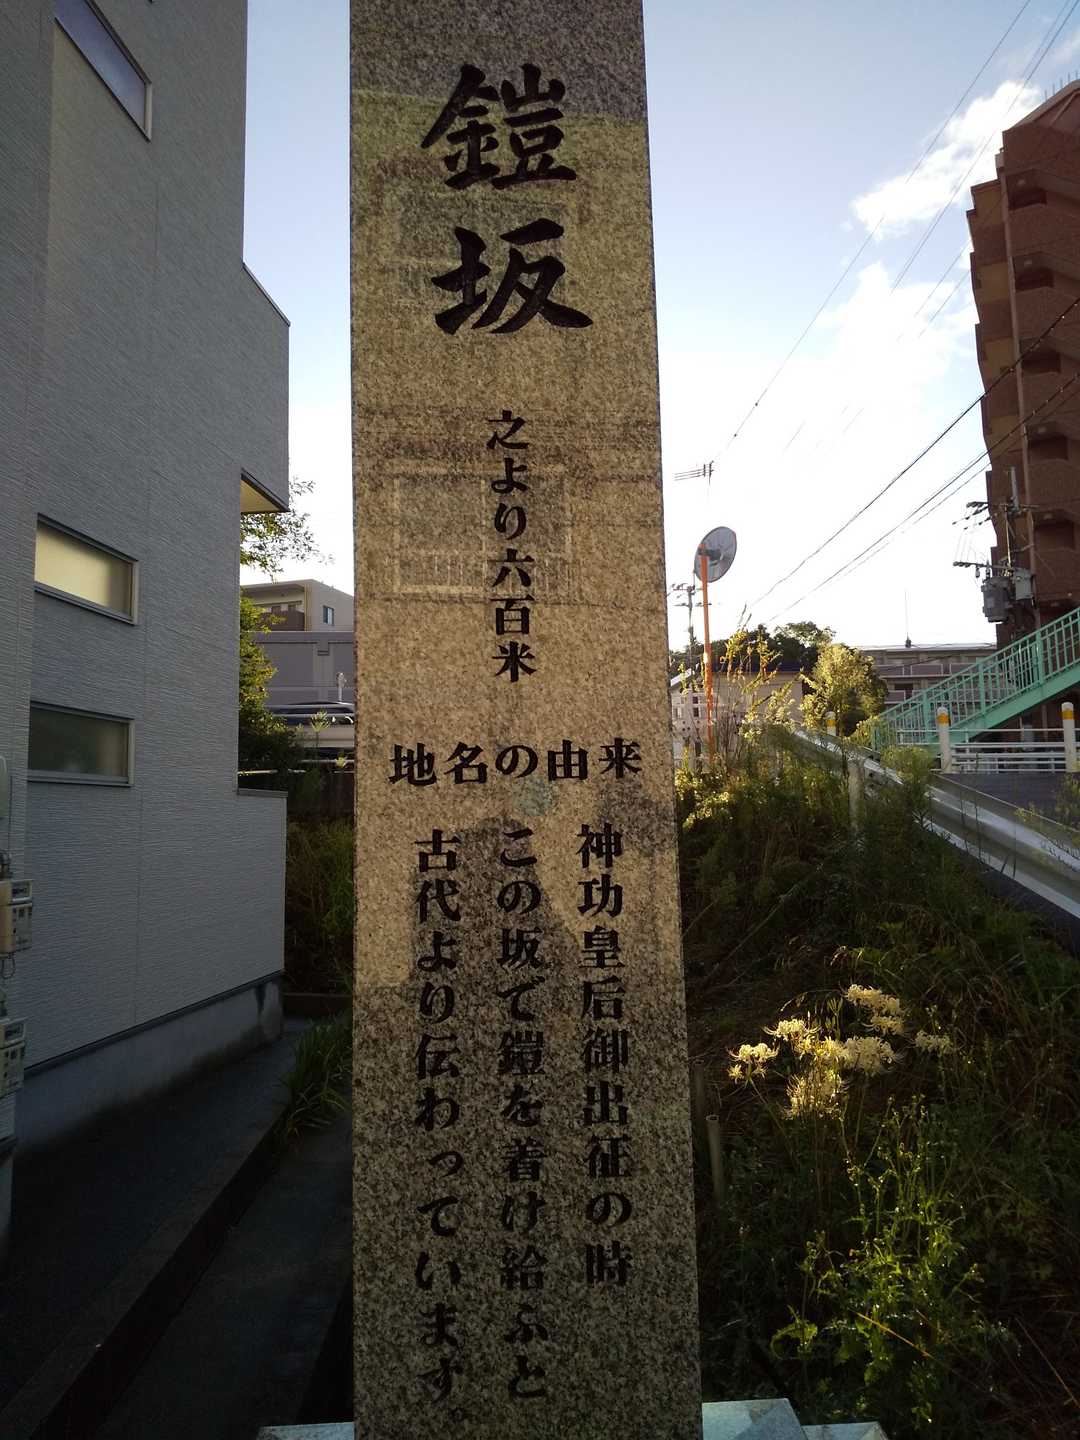 鎧坂
之より六百米
地名の由来
神功皇后御出征の時
この坂で鎧を着け給ふと
古代より伝わっています。